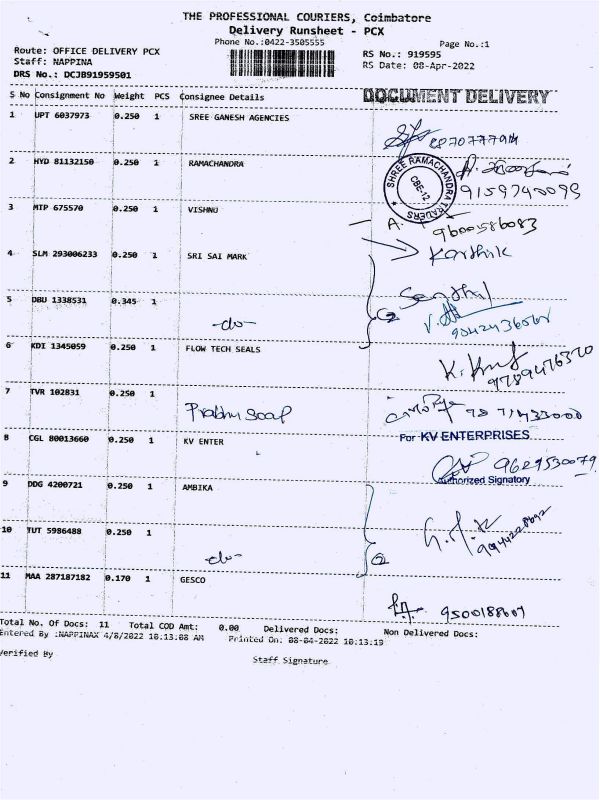 THE PROFESSIONAL COURIERS, Coimbatore
Delivery Runsheet - PCX
Phone No.:0422-3505555
Page No.:1
Route: OFFICE DELIVERY PCX
RS No.: 919595
Staff: NAPPINA
RS Date: 08-Apr-2022
DRS No.: DCJB91959501
S No Consignment No Weight PCS Consignee Details
DOCUMENT DELIVERY
1 UPT 6037973 0.250 1 SREE GANESH AGENCIES
2 HYD 81132150 0.250 1 RAMACHANDRA
SHREE RAMACHANDRA TRADERS
CBE-12
9159740099
3 MTP 675570 0.250 1 VISHNU
A.
9600586083
4 SLM 293006233 0.250 1 SRI SAI MARK
Karthik
5 DBU 1338531 0.345 1
-do-
Senthil
6 KDI 1345059 0.250 1 FLOW TECH SEALS
9789476370
7 TVR 102831 0.250 1
Prabhu Soap
8 CGL 80013660 0.250 1 KV ENTER
For KV ENTERPRISES
9629530079
Authorized Signatory
9 DDG 4200721 0.250 1 AMBIKA
10 TUT 5986488 0.250 1
-do-
11 MAA 287187182 0.170 1 GESCO
Total No. Of Docs: 11 Total COD Amt: 0.00 Delivered Docs: Non Delivered Docs:
Entered By :NAPPINAX 4/8/2022 10:13:08 AM Printed On: 08-04-2022 10:13:19
Verified By
Staff Signature